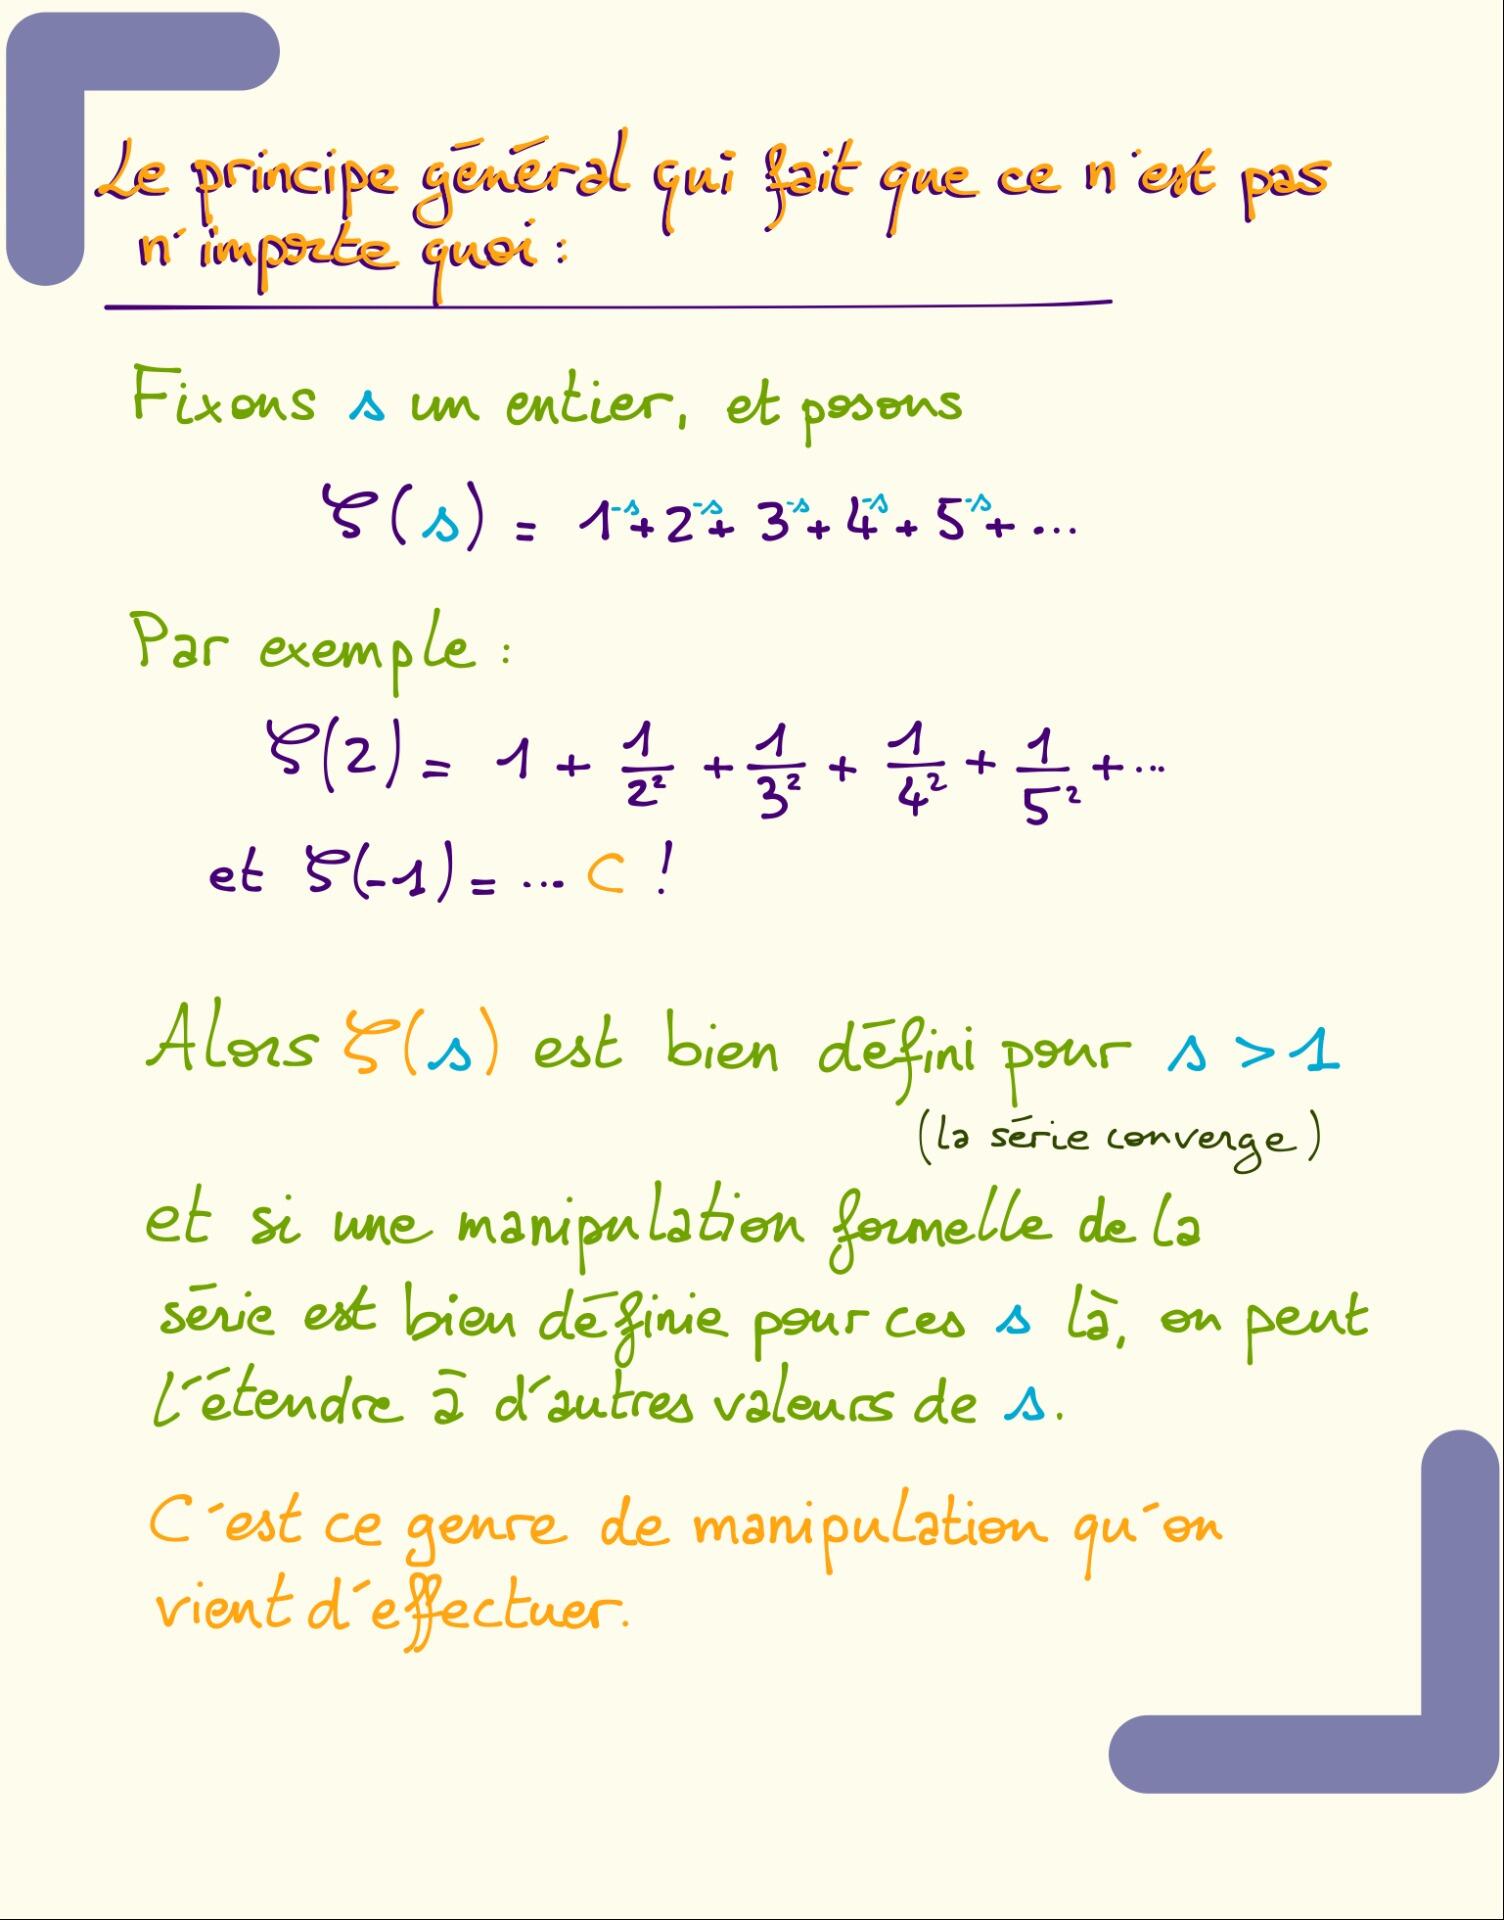 Le principe général qui fait que ce n'est pas
n'importe quoi :
Fixons s un entier, et posons
ζ(s) = 1⁻ˢ + 2⁻ˢ + 3⁻ˢ + 4⁻ˢ + 5⁻ˢ + ...
Par exemple :
ζ(2) = 1 + 1/2² + 1/3² + 1/4² + 1/5² + ...
et ζ(-1) = ... C !
Alors ζ(s) est bien défini pour s > 1
(la série converge)
et si une manipulation formelle de la
série est bien définie pour ces s là, on peut
l'étendre à d'autres valeurs de s.
C'est ce genre de manipulation qu'on
vient d'effectuer.